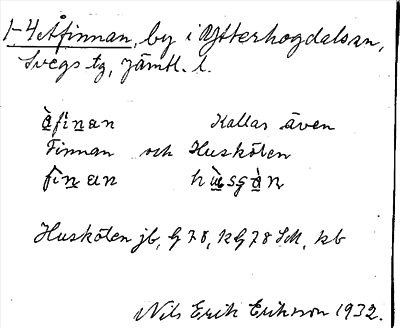 1-4 Åfinnan, by i Ytterhogdals sn,
Svegs tg, Jämtl. l.
å̀fìnan Kallas även
Finnan och Huskölen
fìnan hùsgå̀n
Huskölen jb, G78, kG78 SM, kb
Nils Erik Erikson 1932.